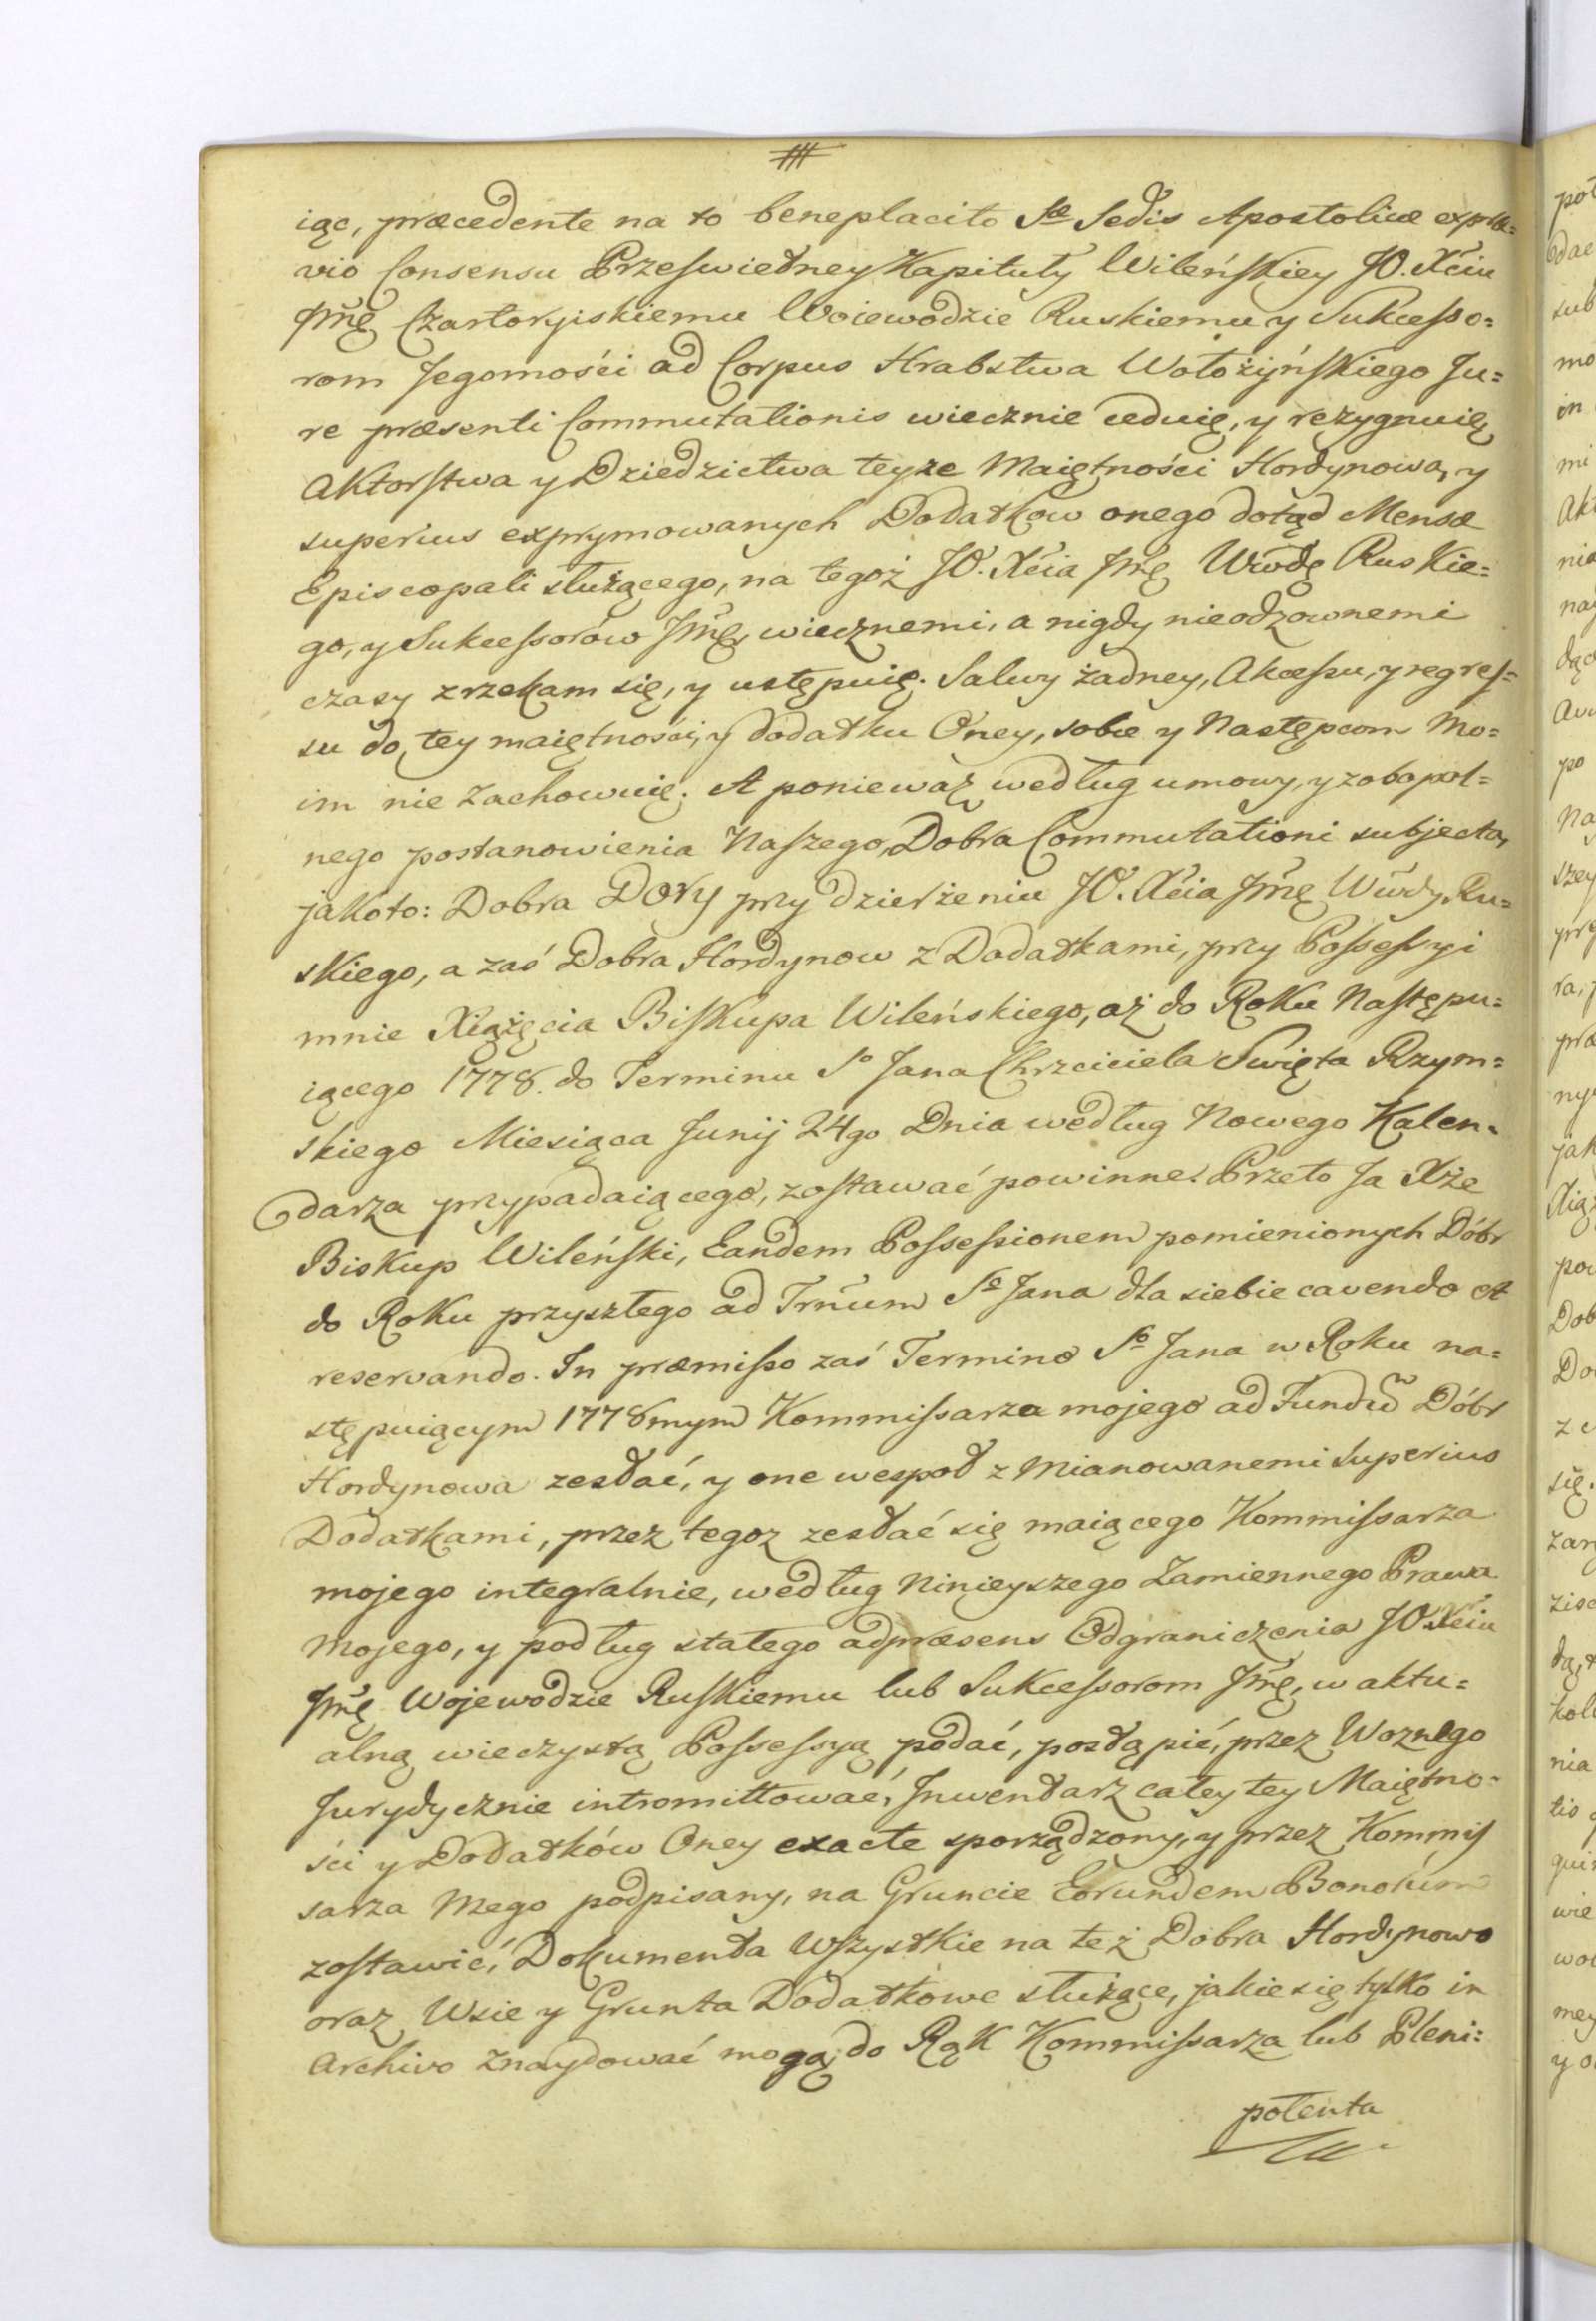 iąc, præcedente na to beneplacito Sæ Sedis Apostolicæ expræ=
vio Consensu Przeswietney Kapituły Wileńskiey JO. Xciu
Jmę Czartoryiskiemu Woiewodzie Ruskiemu y Sukcesso=
rom Jegomości ad Corpus Hrabstwa Wołożyńskiego Ju=
re præsenti Commutationis wiecznie ceduię, y rezygnuię
Aktorstwa y Dziedzictwa teyze Maiętności Hordynowa, y
superius exprymowanych Dodatkow onego dotąd Mensæ
Episcopali służącego, na tegoż JO. Xcia Jmę Wwdę Ruskie=
go, y Sukcessorow Jmę, wiecznemi, a nigdy nieodzownemi
czasy zrzekam się, y ustępuię. Salwy żadney, Akcessu, y regres=
su do tey maiętności, y dodatku Oney, sobie y Następcom Mo=
im nie zachowuię. A ponieważ według umowy, y zobopol=
nego postanowienia Naszego, Dobra Commutationi subjecta,
jakoto: Dobra Dory przy dzierżeniu JO. Xcia Jmę Wwdy Ru=
skiego, a zaś Dobra Hordynow z Dodatkami, przy Possessyi
mnie Xiążęcia Biskupa Wileńskiego, aż do Roku Następu=
iącego 1778. do Terminu So Jana Chrzciciela Swięta Rzym=
skiego Miesiąca Junij 24go Dnia według Nowego Kalen=
darza przypadaiącego, zostawać powinne. Przeto Ja Xże
Biskup Wileński, Eandem Possessionem pomienionych Dóbr
do Roku przyszłego ad Trnum So Jana dla siebie cavendo et
reservando. In præmisso zaś Termino So Jana w Roku na=
stępuiącym 1778mym Kommissarza mojego ad Fundum Dóbr
Hordynowa zesłać, y one wespoł z Mianowanemi Superius
Dodatkami, przez tegoz zesłać się maiącego Kommissarza
mojego integralnie, według Ninieyszego Zamiennego Prawa
Mojego, y podług stałego adpræsens Odgraniczenia JO Xciu
Jmę Wojewodzie Ruskiemu lub Sukcessorom Jmę, w aktu=
alną wieczystą Possessyą podać, postąpić, przez Woznego
Jurydycznie intromittować, Jnwentarz całey tey Maiętno=
ści y Dodatków Oney exacte sporządzony, y przez Kommis
sarza Mego podpisany, na Gruncie Eorundem Bonorum
zostawić, Dokumenta Wszystkie na też Dobra Hordynowo
oraz Wsie y Grunta Dodatkowe służące, jakie się tylko in
Archivo znaydować mogą, do Rąk Kommissarza lub Pleni=
potenta